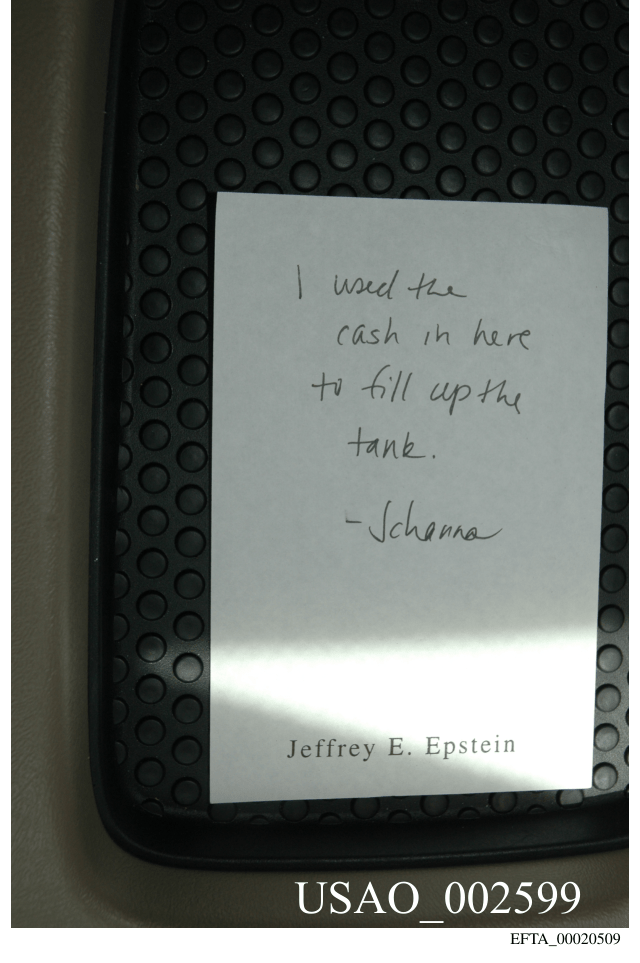 I used the
cash in here
to fill up the
tank.
- Johanna
Jeffrey E. Epstein
USAO_002599
EFTA_00020509